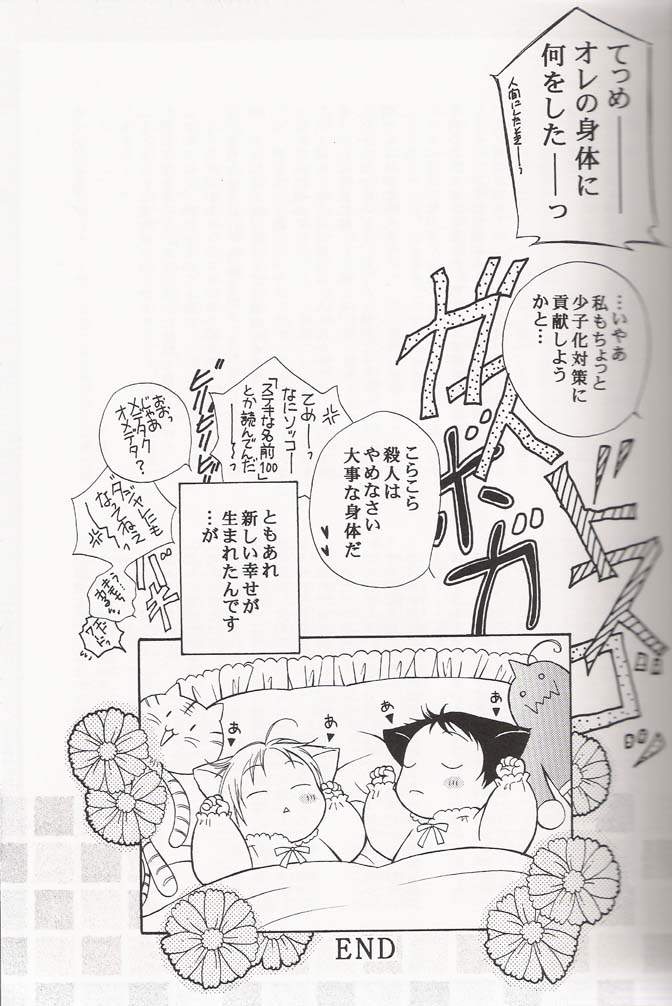 てっめ――
オレの身体に
何をした――っ
…いやあ
私もちょっと
少子化対策に
貢献しよう
かと…
ガス
ドス
ボガ
こらこら
殺人は
やめなさい
大事な身体だ
てめーっ
なにソッコー
「ステキな名前100」
とか読んでんだ
――っ
ビリビリビリ
おおっ
じゃあ
メデタク
オメデタ?
ダジャレにも
なってねえ
――っ
バキ
ともあれ
新しい幸せが
生まれたんです
…が
あ
あ
あ
あ
END